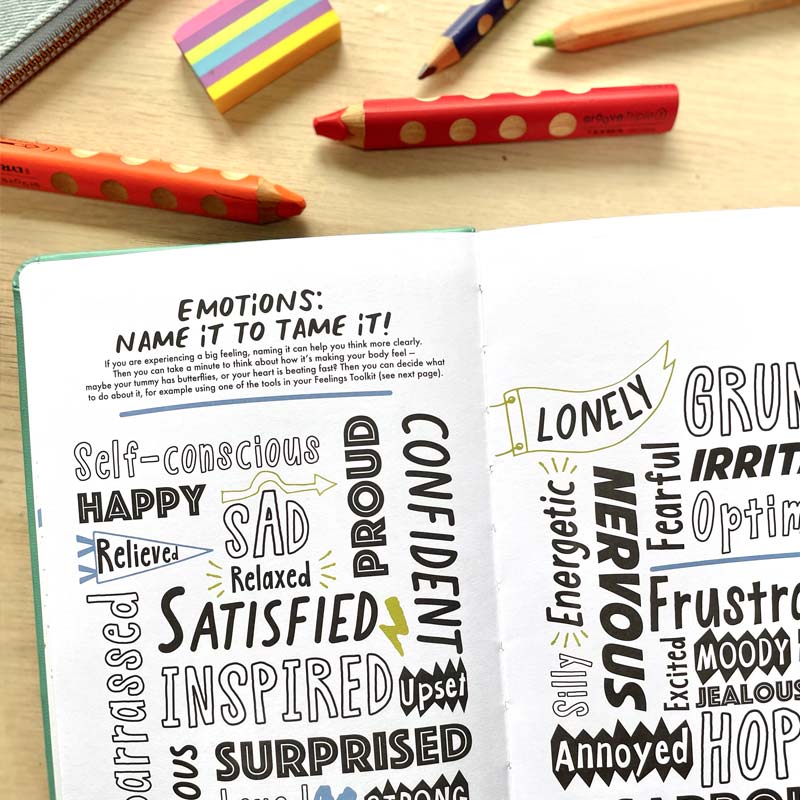 GROOVE Triple 1
LYRA
EMOTIONS:
NAME IT TO TAME IT!
If you are experiencing a big feeling, naming it can help you think more clearly.
Then you can take a minute to think about how it's making your body feel –
maybe your tummy has butterflies, or your heart is beating fast? Then you can decide what
to do about it, for example using one of the tools in your Feelings Toolkit (see next page).
Self-conscious
HAPPY
Relieved
SAD
Relaxed
PROUD
CONFIDENT
SATISFIED
barrassed
INSPIRED
Upset
OUS
SURPRISED
STRONG
LONELY
GRUM
IRRITA
Energetic
NERVOUS
Fearful
Optim
Frustra
Silly
Excited
MOODY
JEALOUS
Annoyed
HOP